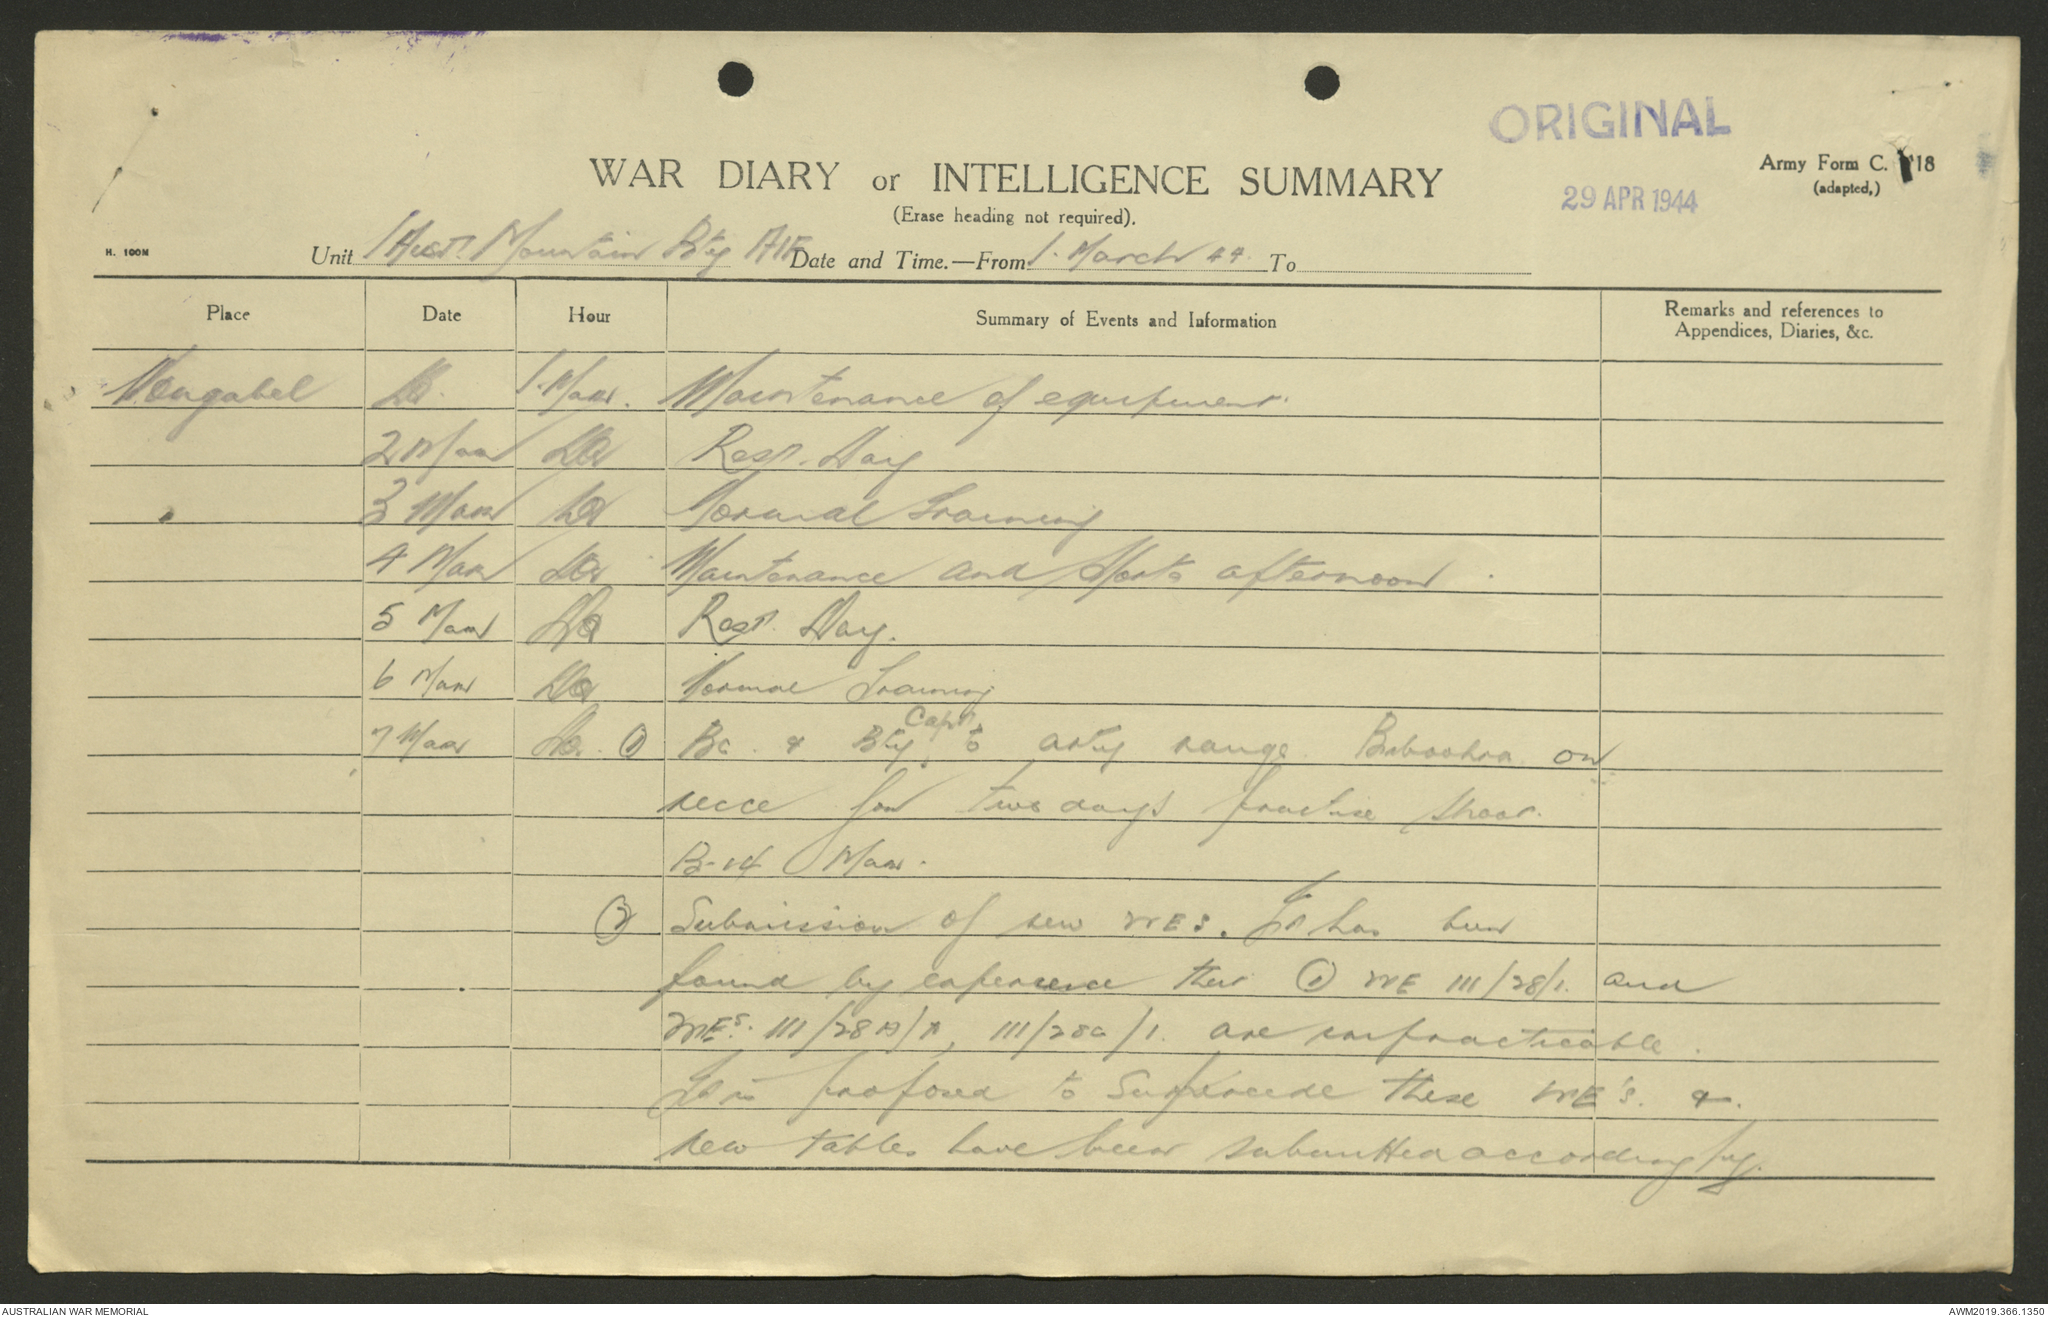 ORIGINAL
Army Form C. 118
(adapted,)
29 APR 1944
WAR DIARY or INTELLIGENCE SUMMARY
(Erase heading not required).
H. 100M
Unit 1 Aust Mountain Bty AIF Date and Time.—From 1. March 44. To
Place Date Hour Summary of Events and Information Remarks and references to
Appendices, Diaries, &c.
Wongabel 1. Mar. Maintenance of equipment.
2 Mar Rest. Day
3 Mar Normal Training
4 Mar Maintenance and Sports afternoon.
5 Mar Rest. Day.
6 Mar Normal Training
7 Mar ① BC. & Bty Capt to arty range Biboohra on
recce for two days practise shoot.
13-14 Mar.
② Submission of new WES. It has been
found by experience that ① WE 111/28/1. and
WEs. 111/28A/1, 111/28G/1. are impracticable.
It is proposed to supercede these WE's. &.
new tables have been submitted accordingly.
AUSTRALIAN WAR MEMORIAL
AWM2019.366.1350